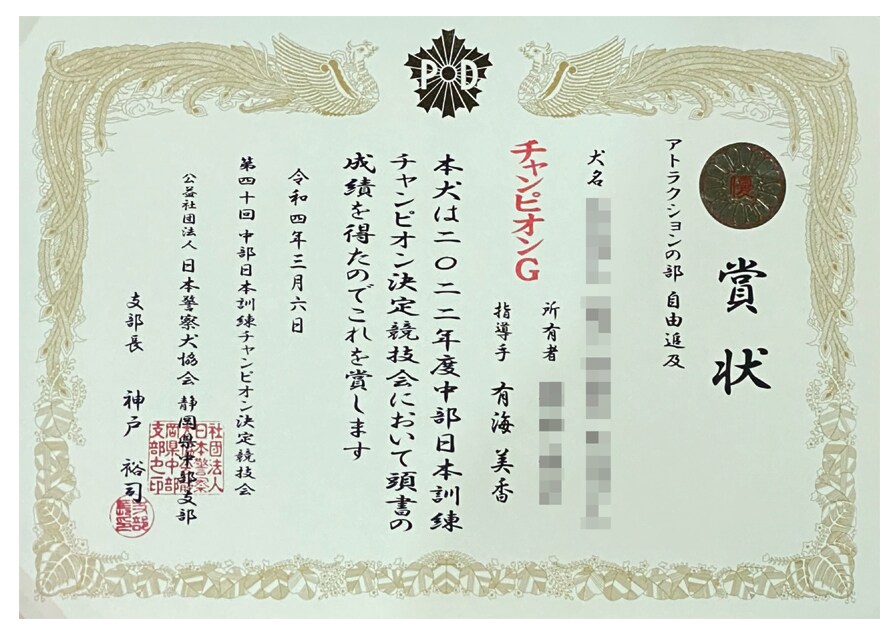 賞状
優
アトラクションの部 自由追及
犬名
チャンピオンG
所有者
指導手 有海 美香
本犬は二〇二二年度中部日本訓練
チャンピオン決定競技会において頭書の
成績を得たのでこれを賞します
令和四年三月六日
第四十回 中部日本訓練チャンピオン決定競技会
公益社団法人 日本警察犬協会 静岡県中部支部
支部長 神戸 裕司
PD